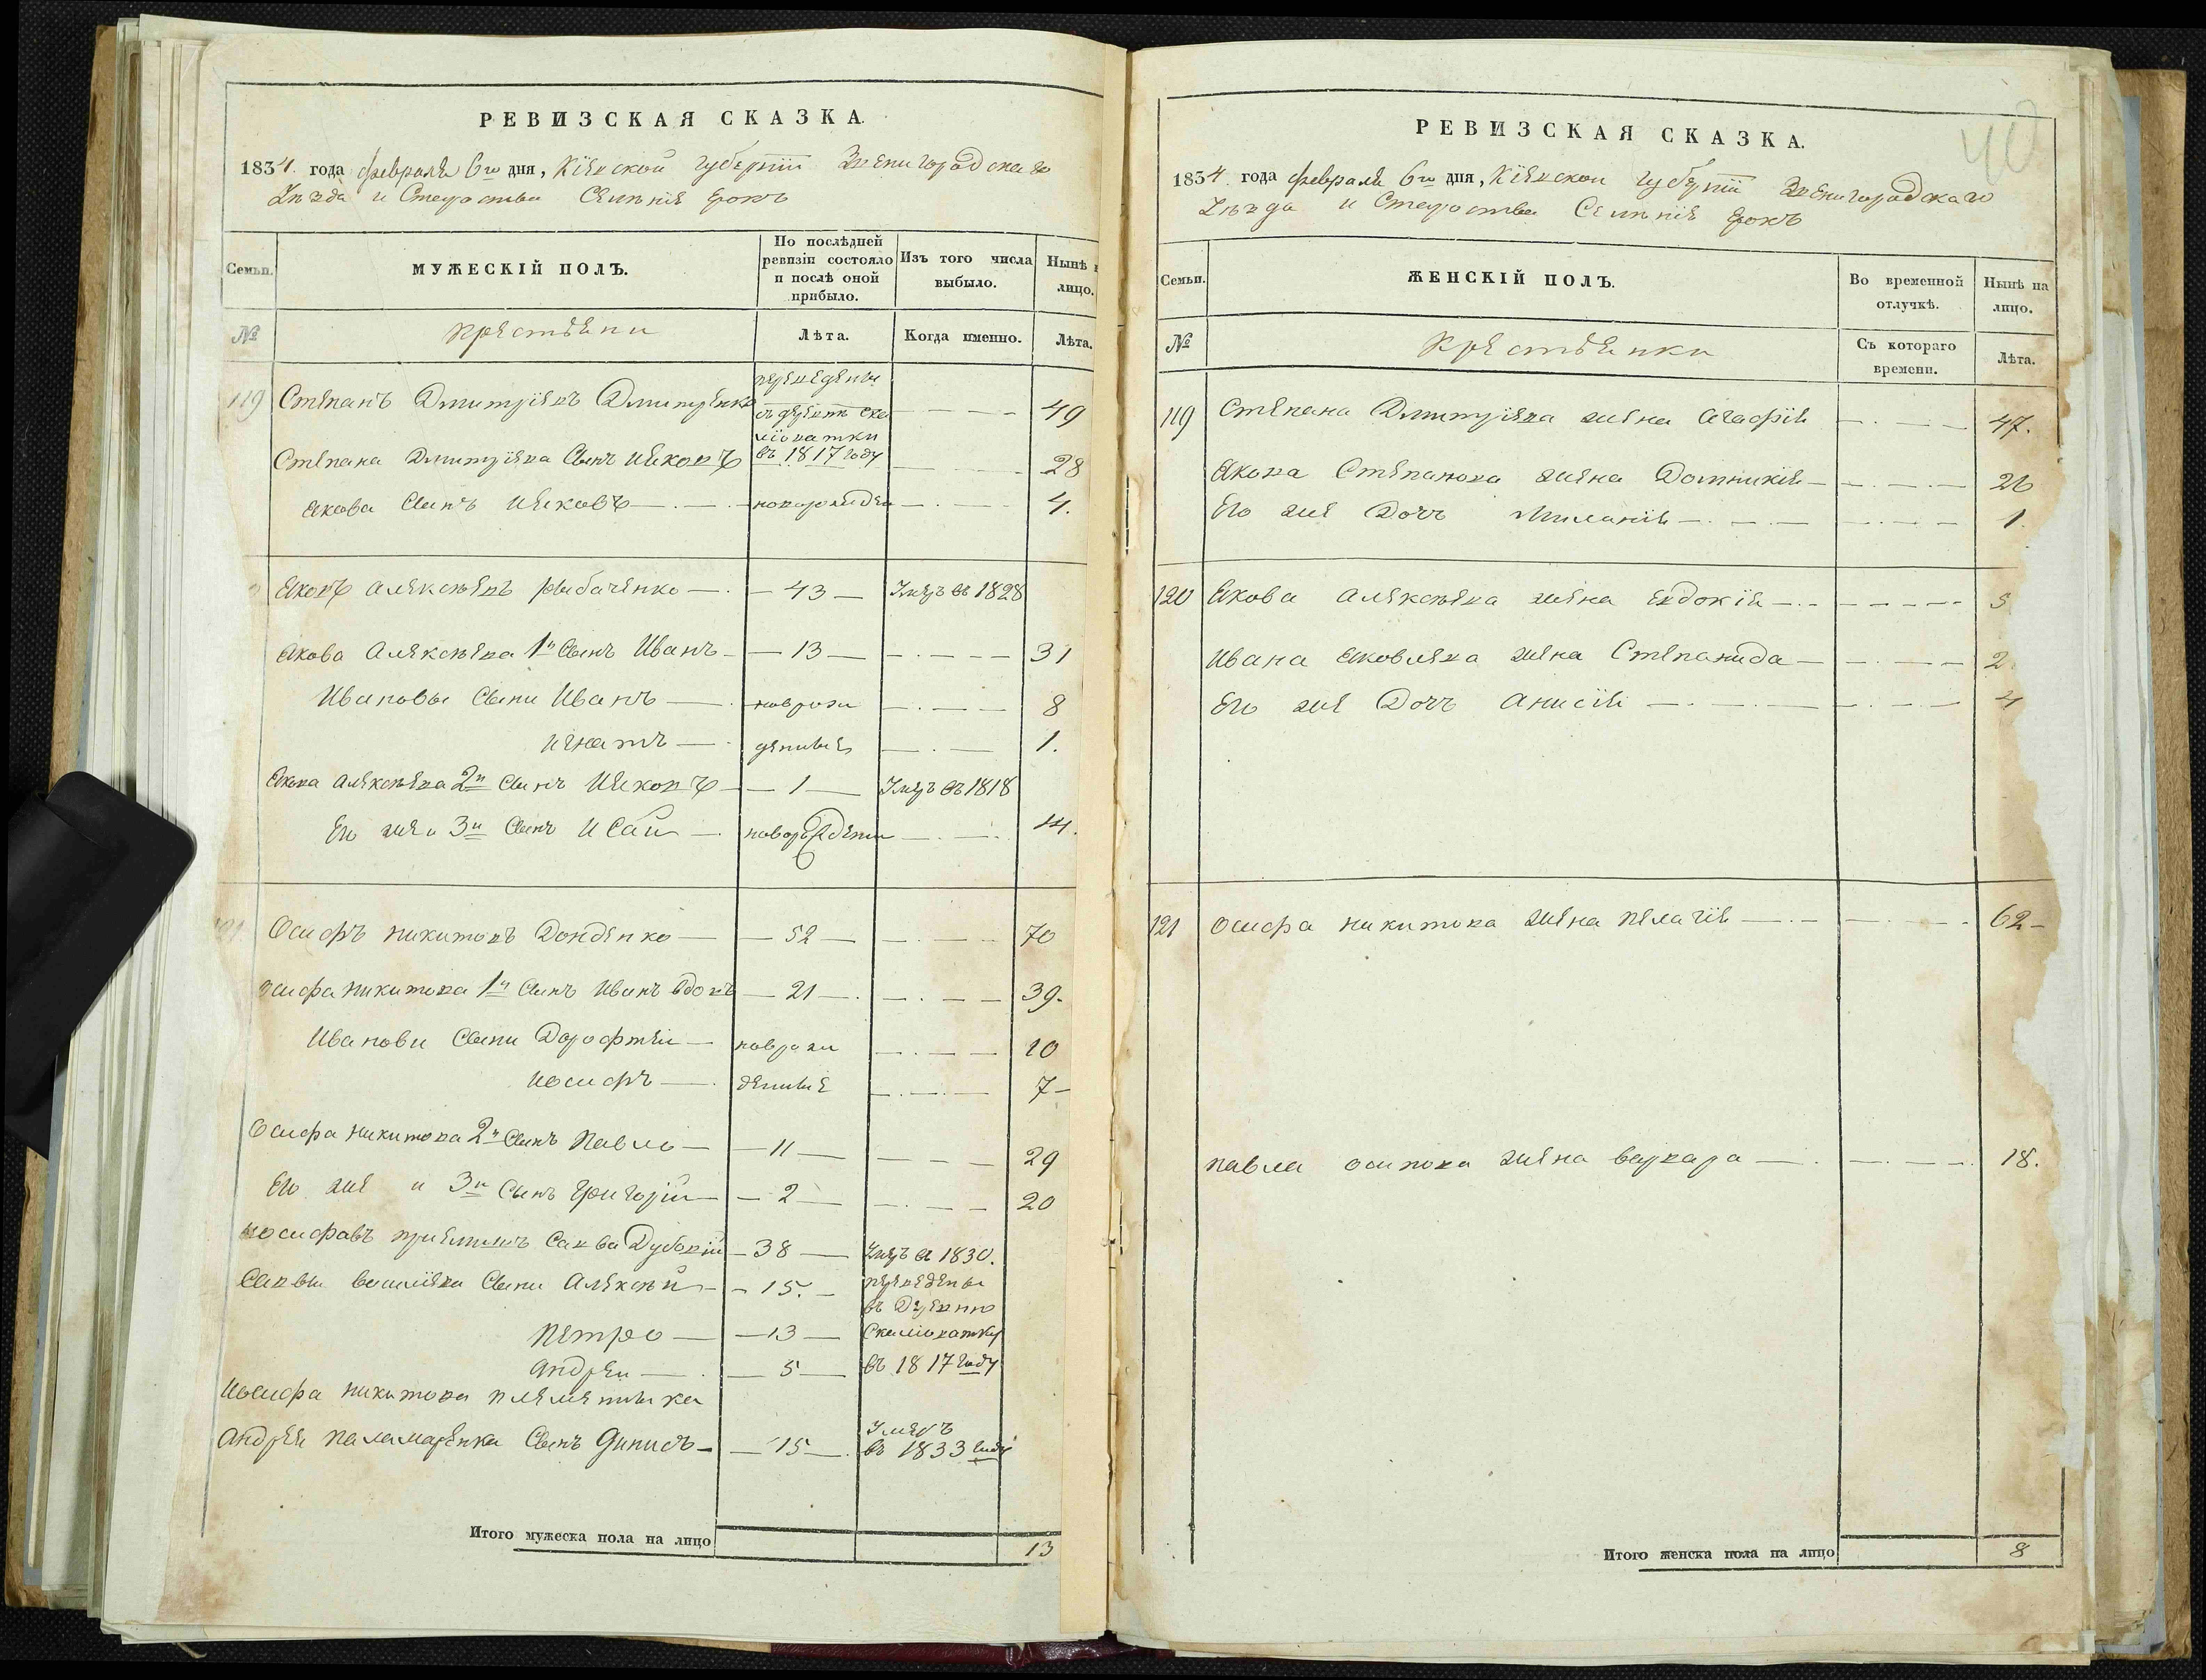 РЕВИЗСКАЯ СКАЗКА.
1834. года февраля 6го дня, Кіевской губерніи Звенигородскаго
Уезда и Староства Селенія
Семьи.
МУЖЕСКІЙ ПОЛЪ.
По послѣдней ревизіи состояло и послѣ оной прибыло.
Изъ того числа выбыло.
Нынѣ
лицо.
№
Крестьяни
Лѣта.
Когда именно.
Лѣта.
119 Степанъ Дмитріевъ Дмитренко переведены — 49
въ 1817 году
Степана Дмитріева Сынъ Ияковъ — 28
Якова Сынъ Ияковъ — новорожден — 4.
Яковъ Алексѣевъ Рыбаченко — 43 — Умеръ въ 1828
Якова Алексѣева 1й Сынъ Иванъ — 13 — 31
Ивановы Сыни Иванъ — наврожи — 8
Игнатъ — деныые — 1.
Якова Алексѣева 2й Сынъ Ияковъ — 1 — Умеръ въ 1818
Его же и 3й Сынъ Исай — новорожденни — 14.
Осифъ Никитовъ Донденко — 52 — 70
Осифа Никитова 1й Сынъ Иванъ вдовъ — 21 — 39.
Иванови Сыни Дорофтей — наврожи — 10
Иосифъ — денные — 7
Осифа Никитова 2й Сынъ Павло — 11 — 29
Его же и 3й Сынъ Григорій — 2 — 20
Иосифавъ приемышъ Савва — 38 — Умеръ в 1830.
Саввы Сыни Алексѣй — 15. — переведены
въ Деревню
Петро — 13 — Скалеватку
Андрей — 5 — въ 1817 году
Иосифа Никитова племетныка
Андрея Паламаренка Сынъ Динисъ — 15 — Умеръ
въ 1833 году
Итого мужеска пола на лицо 13
40
РЕВИЗСКАЯ СКАЗКА.
1834. года февраля 6го дня, Кіевской губерніи Звенигородскаго
Уезда и Староства Селенія
Семьи.
ЖЕНСКІЙ ПОЛЪ.
Во временной отлучкѣ.
Нынѣ на лицо.
№
Крестьянки
Съ котораго времени.
Лѣта.
119 Степана Дмитріева жена Агафія — 47.
Якова Степанова жена Домникія — 26
Его же Дочъ Миланія — 1.
120 Якова Алексѣева жена Евдокія —
Ивана Яковлева жена Степанида — 2
Его же Дочъ Анисія — 4
121 Осифа Никитова жена Пелагія — 62
Павла Осипова жена Варвара — 18.
Итого женска пола на лицо 8